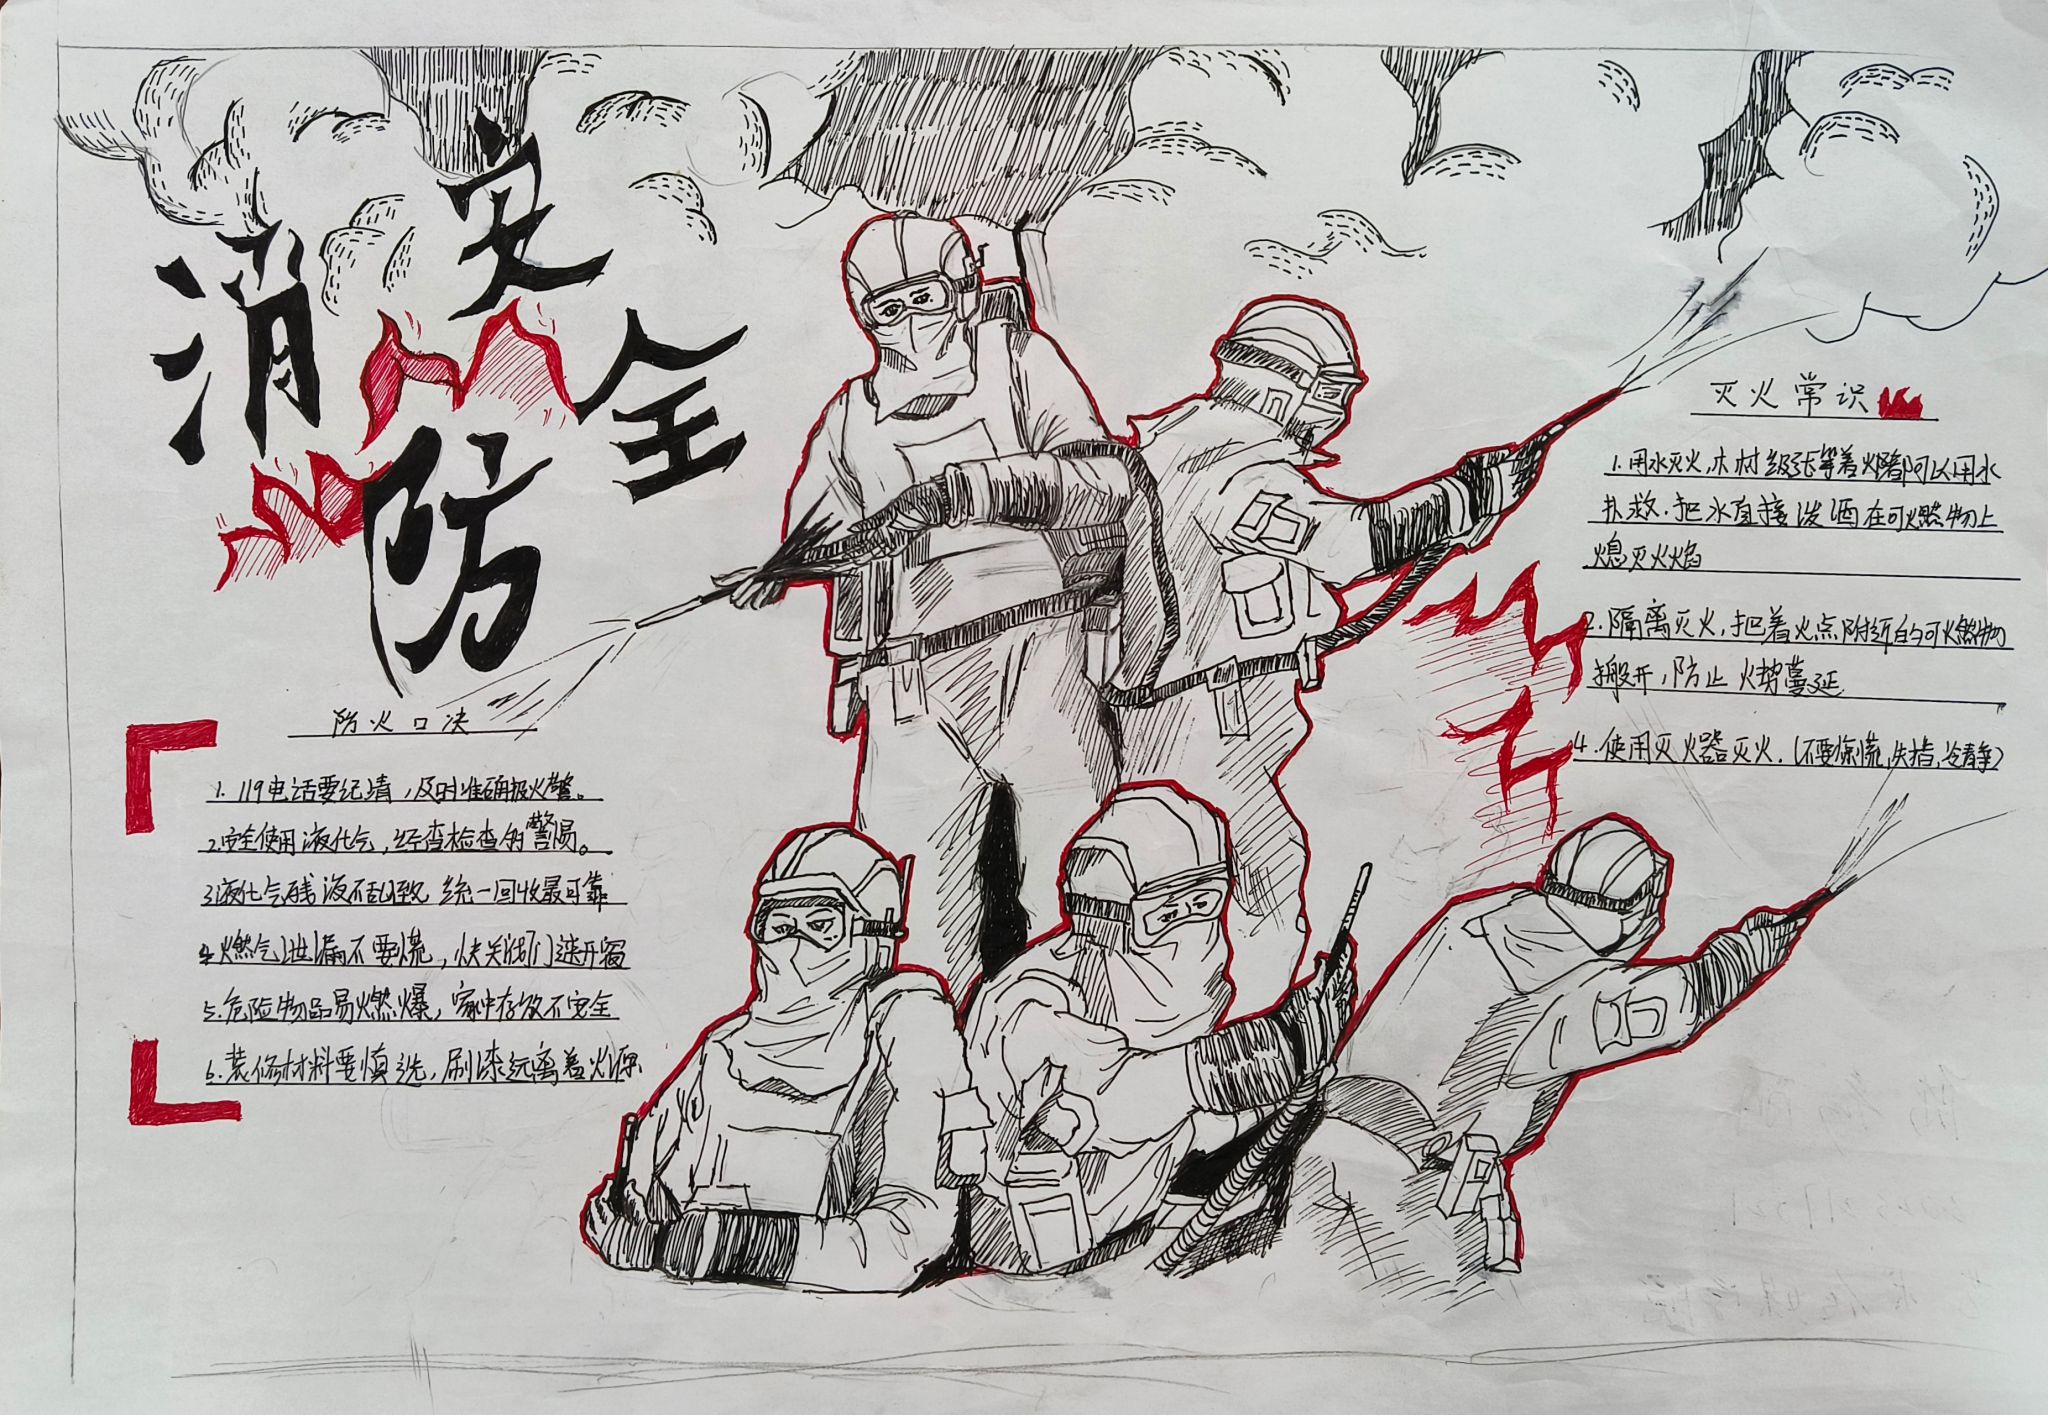 消防
安全
防火口决
1. 119电话要记清，及时准确报火警。
2.安全使用液化气，经查检查的警惕。
3液化气残液不乱倒 统一回收最可靠
4燃气泄漏不要慌，快关阀门速开窗
5.危险物品易燃爆，家中存放不安全
6.装修材料要慎选，刷漆远离着火源
灭火常识
1.用水灭火,木材纸张等着火时可以用水
扑救.把水直接泼洒在可燃物上
熄灭火焰
2.隔离灭火,把着火点附近的可燃物
搬开,防止火势蔓延
4.使用灭火器灭火.(不要惊慌,失措,冷静)